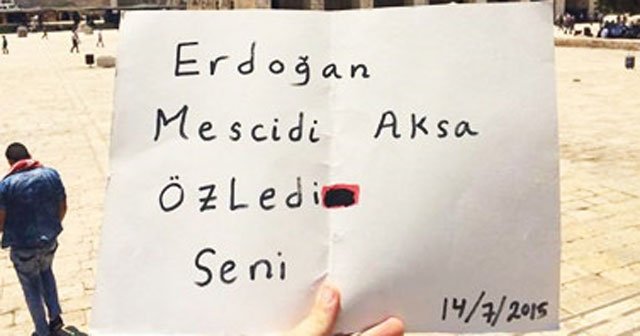 Erdoğan
Mescidi Aksa
Özledi
Seni
14/7/2015